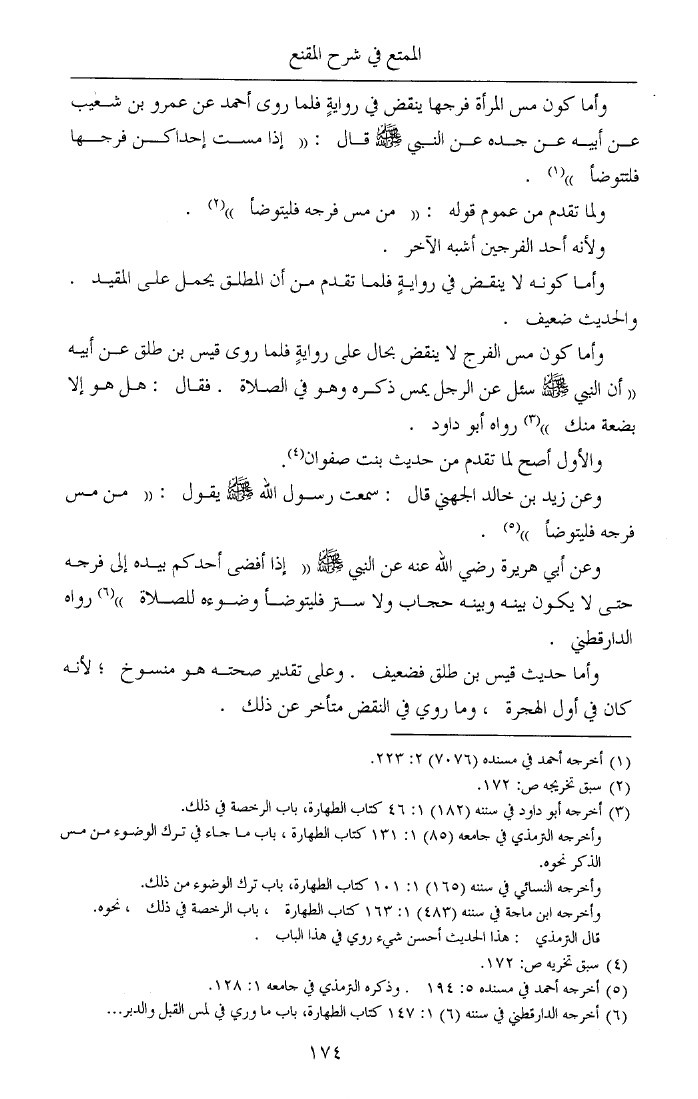 الممتع في شرح المقنع
وأما كون مس المرأة فرجها ينقض في روايةٍ فلما روى أحمد عن عمرو بن شعيب
عن أبيه عن جده عن النبي ﷺ قال : (( إذا مست إحداكن فرجها
فلتتوضأ ))(١) .
ولما تقدم من عموم قوله : (( من مس فرجه فليتوضأ ))(٢) .
ولأنه أحد الفرجين أشبه الآخر .
وأما كونه لا ينقض في روايةٍ فلما تقدم من أن المطلق يحمل على المقيد .
والحديث ضعيف .
وأما كون مس الفرج لا ينقض بحال على روايةٍ فلما روى قيس بن طلق عن أبيه
(( أن النبي ﷺ سئل عن الرجل يمس ذكره وهو في الصلاة . فقال : هل هو إلا
بضعة منك ))(٣) رواه أبو داود .
والأول أصح لما تقدم من حديث بنت صفوان(٤).
وعن زيد بن خالد الجهني قال : سمعت رسول الله ﷺ يقول : (( من مس
فرجه فليتوضأ ))(٥) .
وعن أبي هريرة رضي الله عنه عن النبي ﷺ (( إذا أفضى أحدكم بيده إلى فرجه
حتى لا يكون بينه وبينه حجاب ولا ستر فليتوضأ وضوءه للصلاة ))(٦) رواه
الدارقطني .
وأما حديث قيس بن طلق فضعيف . وعلى تقدير صحته هو منسوخ ؛ لأنه
كان في أول الهجرة ، وما روي في النقض متأخر عن ذلك .
(١) أخرجه أحمد في مسنده (٧٠٧٦) ٢: ٢٢٣.
(٢) سبق تخريجه ص: ١٧٢.
(٣) أخرجه أبو داود في سننه (١٨٢) ١: ٤٦ كتاب الطهارة، باب الرخصة في ذلك.
وأخرجه الترمذي في جامعه (٨٥) ١: ١٣١ كتاب الطهارة ، باب ما جاء في ترك الوضوء من مس
الذكر نحوه.
وأخرجه النسائي في سننه (١٦٥) ١: ١٠١ كتاب الطهارة، باب ترك الوضوء من ذلك.
وأخرجه ابن ماجة في سننه (٤٨٣) ١: ١٦٣ كتاب الطهارة ، باب الرخصة في ذلك ، نحوه.
قال الترمذي : هذا الحديث أحسن شيء روي في هذا الباب .
(٤) سبق تخريه ص: ١٧٢.
(٥) أخرجه أحمد في مسنده ٥: ١٩٤ . وذكره الترمذي في جامعه ١: ١٢٨.
(٦) أخرجه الدارقطني في سننه (٦) ١: ١٤٧ كتاب الطهارة، باب ما وري في لمس القبل والدبر...
١٧٤